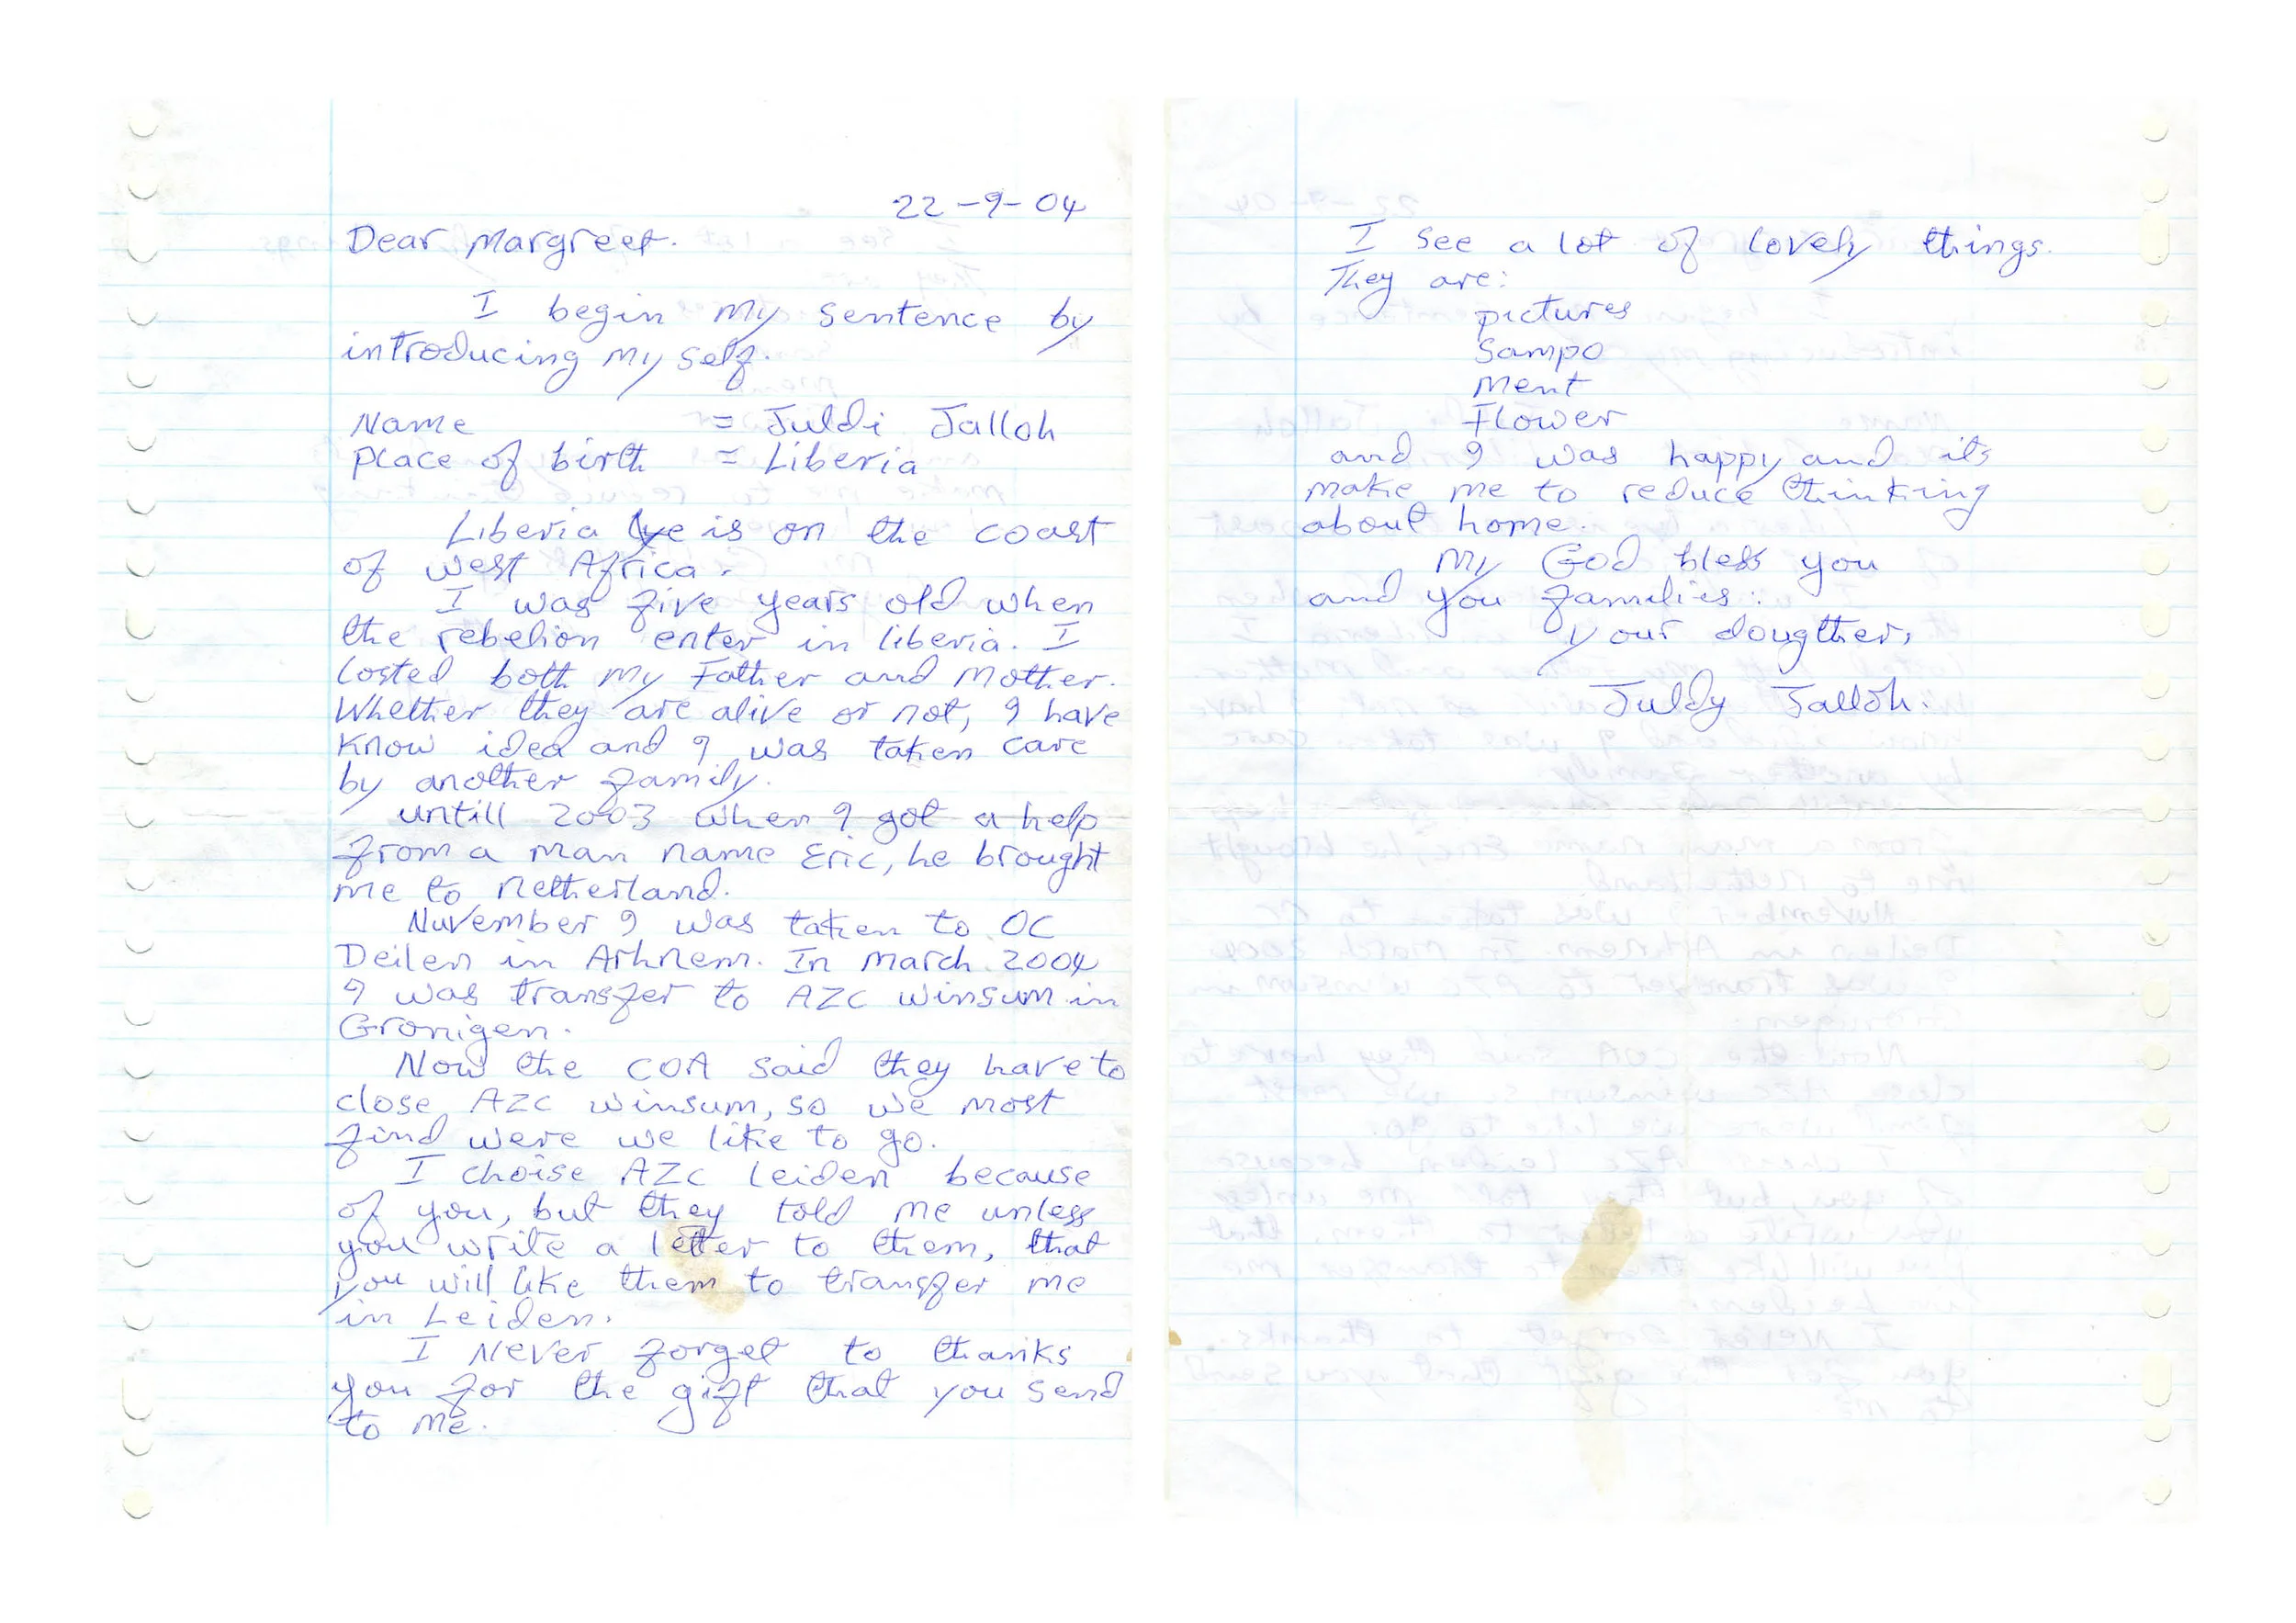 22-9-04
Dear Margreet.
I begin my sentence by
introducing my self.
Name = Juldi Jalloh
place of birth = Liberia
Liberia is on the coast
of west Africa.
I was five years old when
the rebelion enter in liberia. I
losted both my Father and Mother.
Whether they are alive or not, I have
know idea and I was taken care
by another family.
untill 2003 when I got a help
from a man name Eric, he brought
me to Netherland.
Nuvember I was taken to OC
Deilen in Arhnem. In march 2004
I was transfer to AZC winsum in
Gronigen.
Now the COA said they have to
close AZC winsum, so we most
find were we like to go.
I choise AZC leiden because
of you, but they told me unless
you write a letter to them, that
you will like them to transfer me
in Leiden.
I Never forget to thanks
you for the gift that you send
to me.
I see a lot of lovely things.
They are:
pictures
Sampo
ment
Flower
and I was happy and its
make me to reduce thinking
about home.
my God bless you
and you families.
your dougther,
Juldy Jalloh.